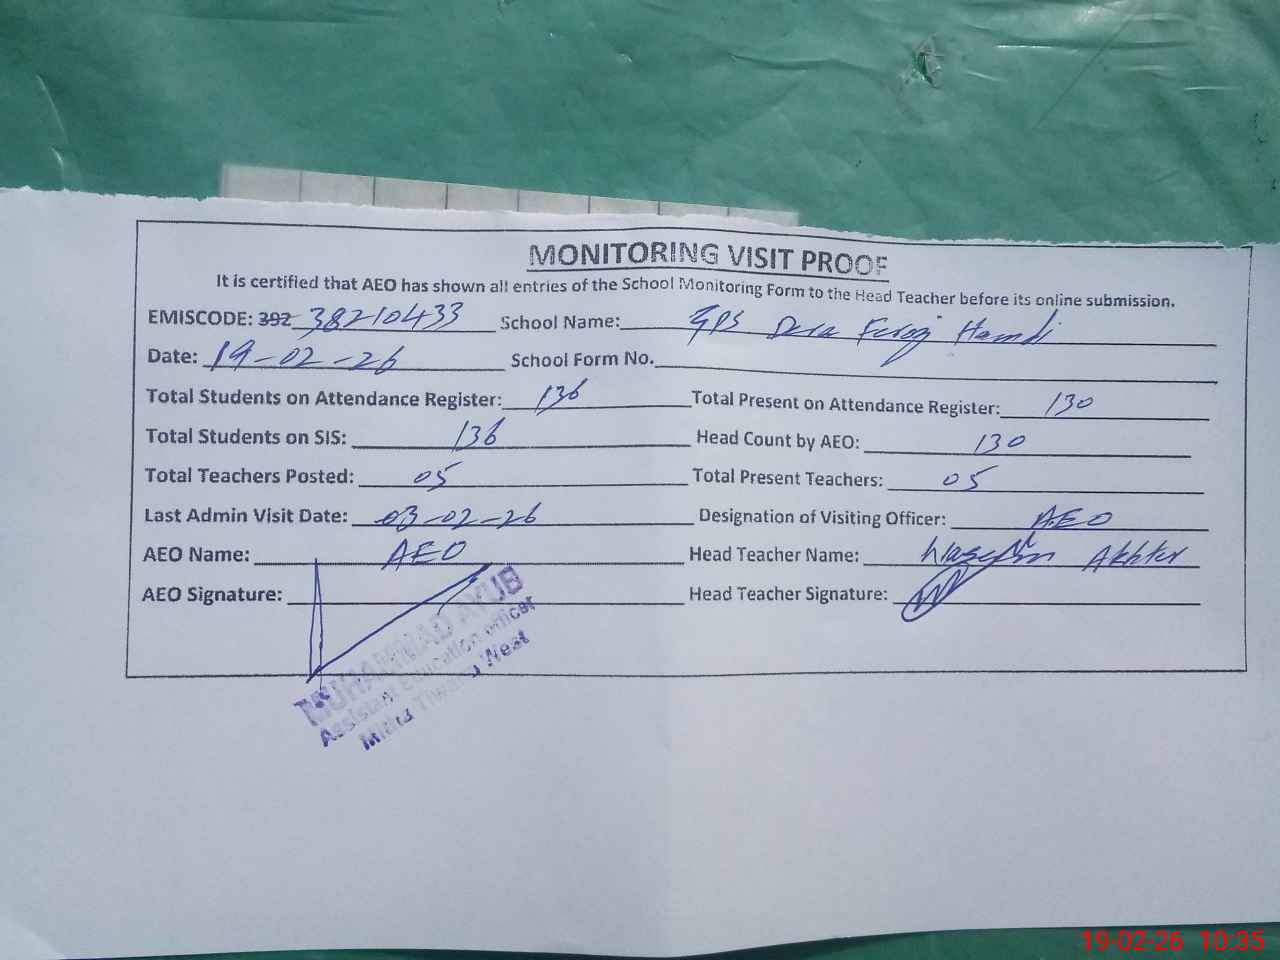 MONITORING VISIT PROOF
It is certified that AEO has shown all entries of the School Monitoring Form to the Head Teacher before its online submission.
EMISCODE: 392 38210433 School Name: GPS Dera Feroz
Date: 19-02-26 School Form No.
Total Students on Attendance Register: 136 Total Present on Attendance Register: 130
Total Students on SIS: 136 Head Count by AEO: 130
Total Teachers Posted: 05 Total Present Teachers: 05
Last Admin Visit Date: 03-02-26 Designation of Visiting Officer: AEO
AEO Name: AEO Head Teacher Name: Akhter
AEO Signature: Head Teacher Signature:
MUHAMMAD AYUB
Assistant Education officer
Mitha Tiwana West
19-02-26 10:35